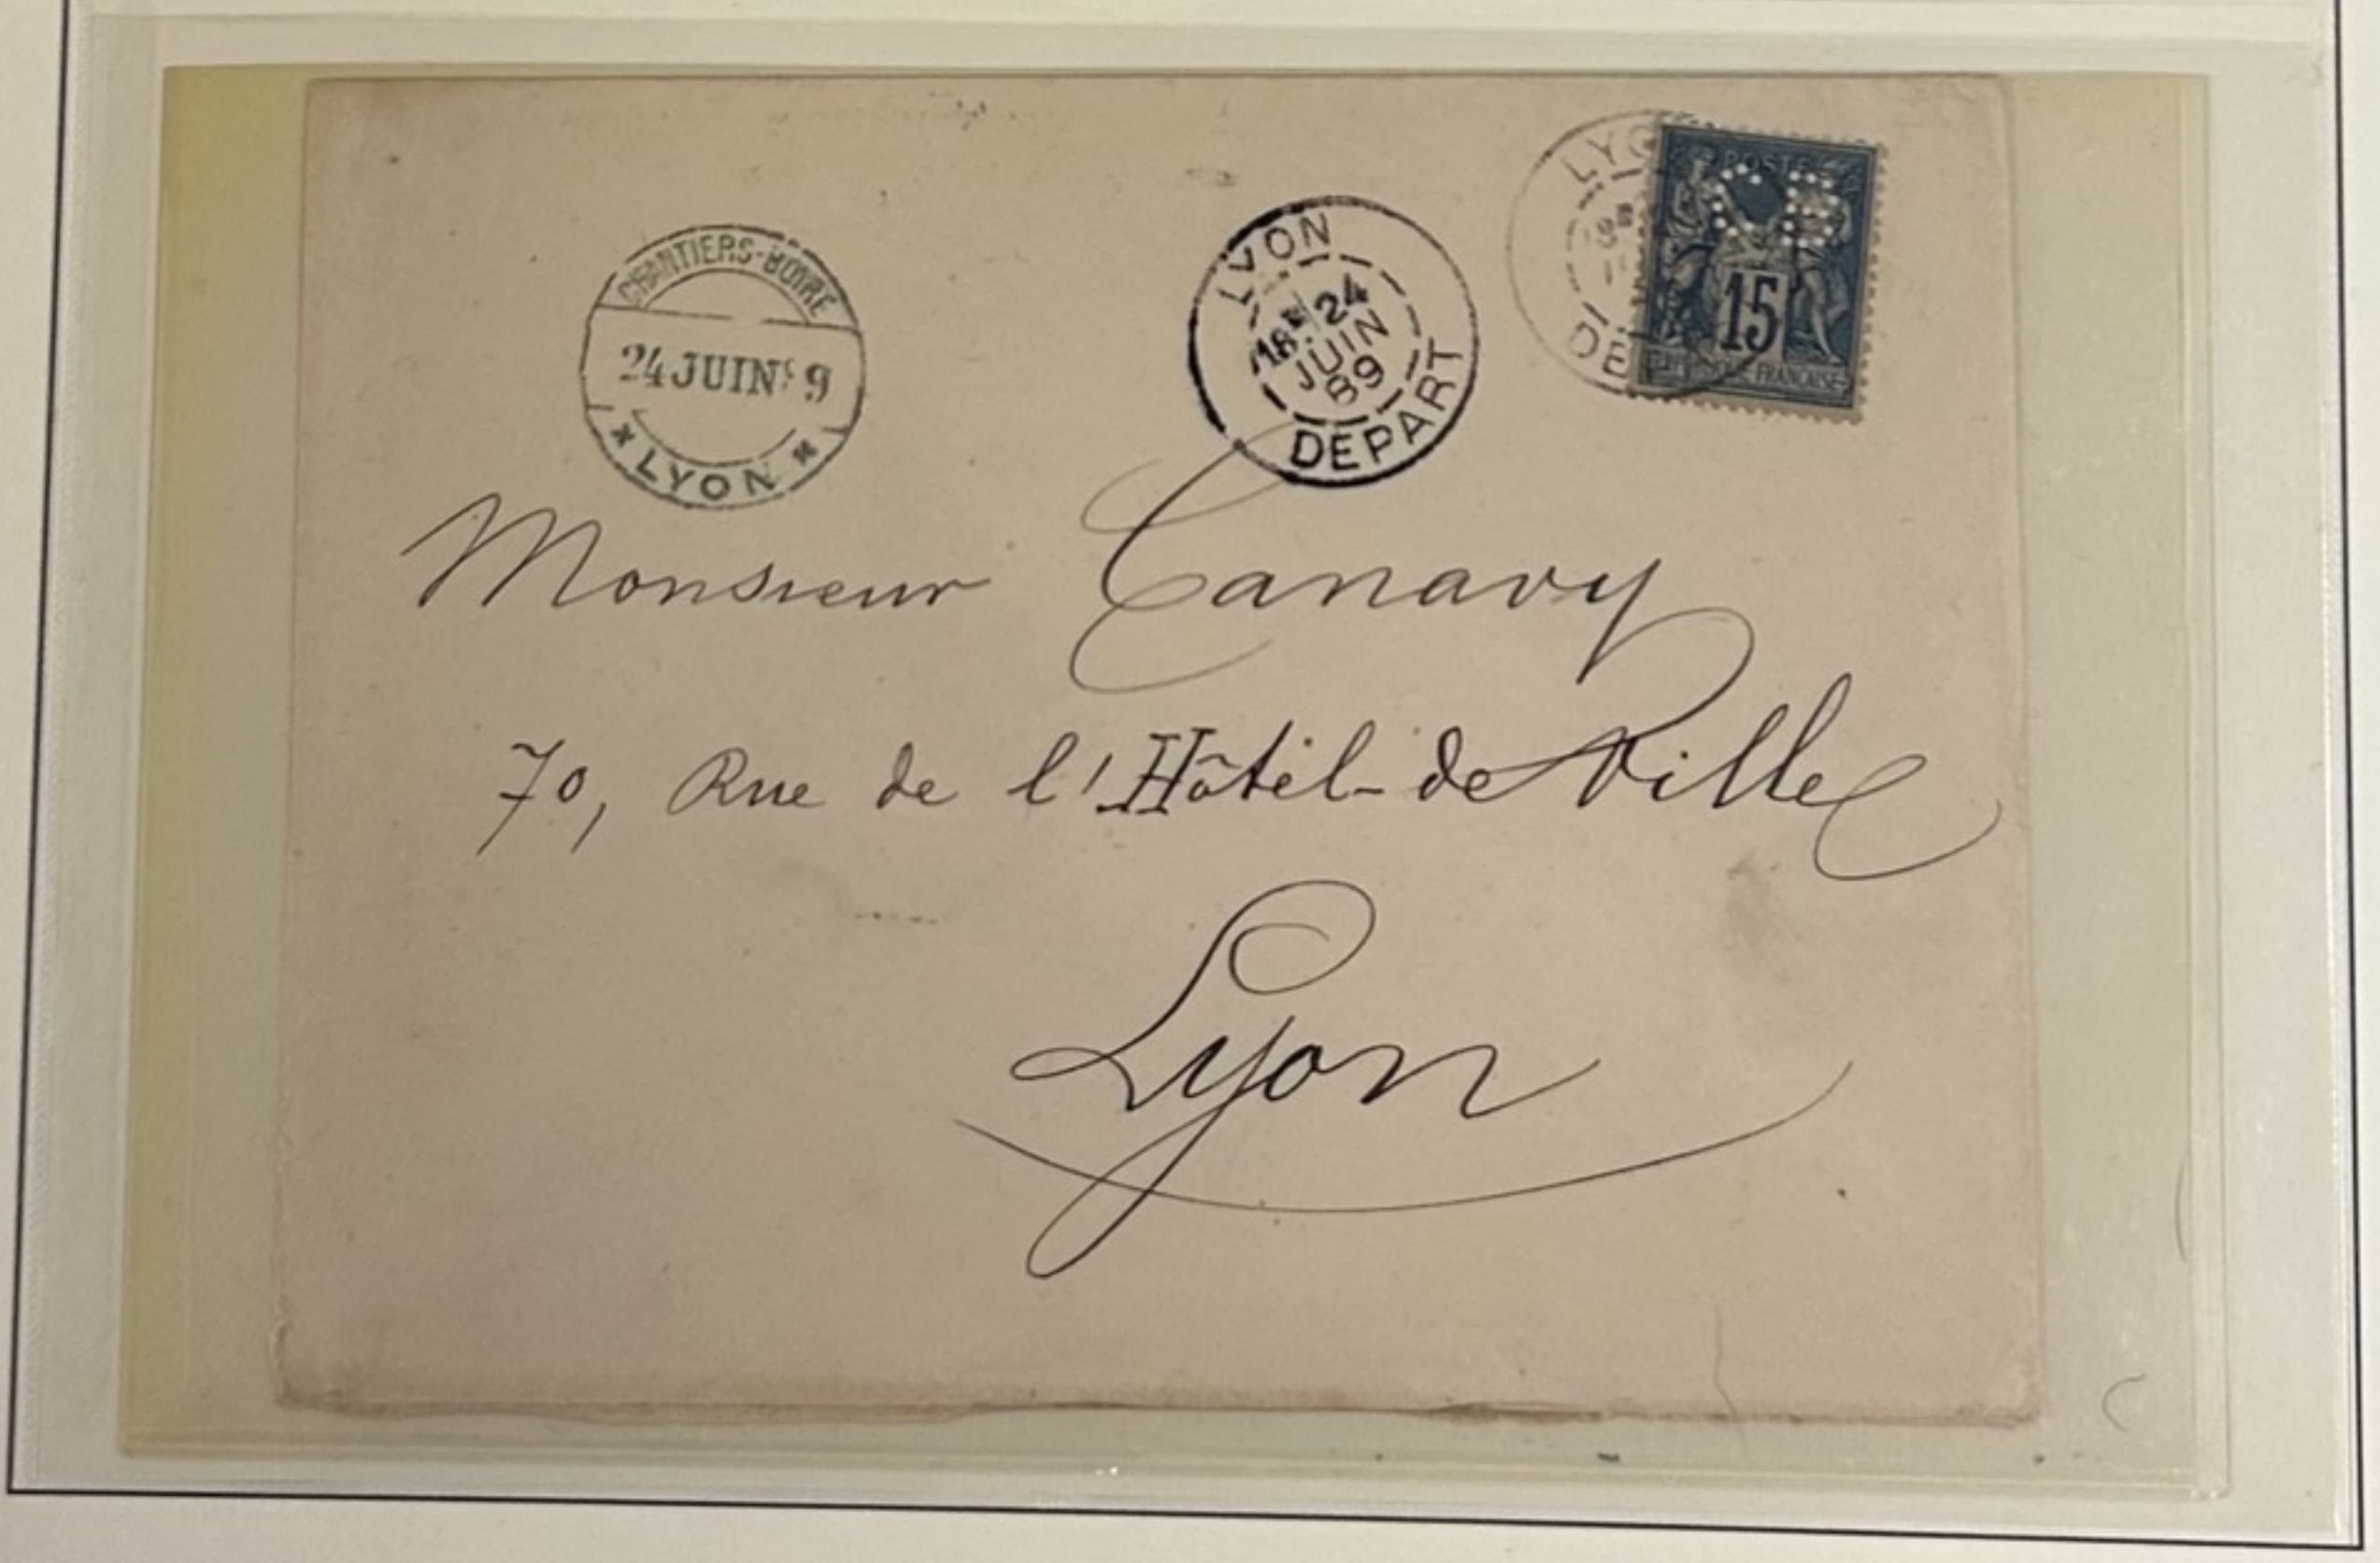 CHANTIERS-BUIRE
24 JUIN 9
LYON
LYON
18E 24
JUIN
89
DEPART
LYO
DE
POSTE
15
FRANÇAISE
Monsieur Canavy
70, Rue de l'Hôtel-de Ville
Lyon